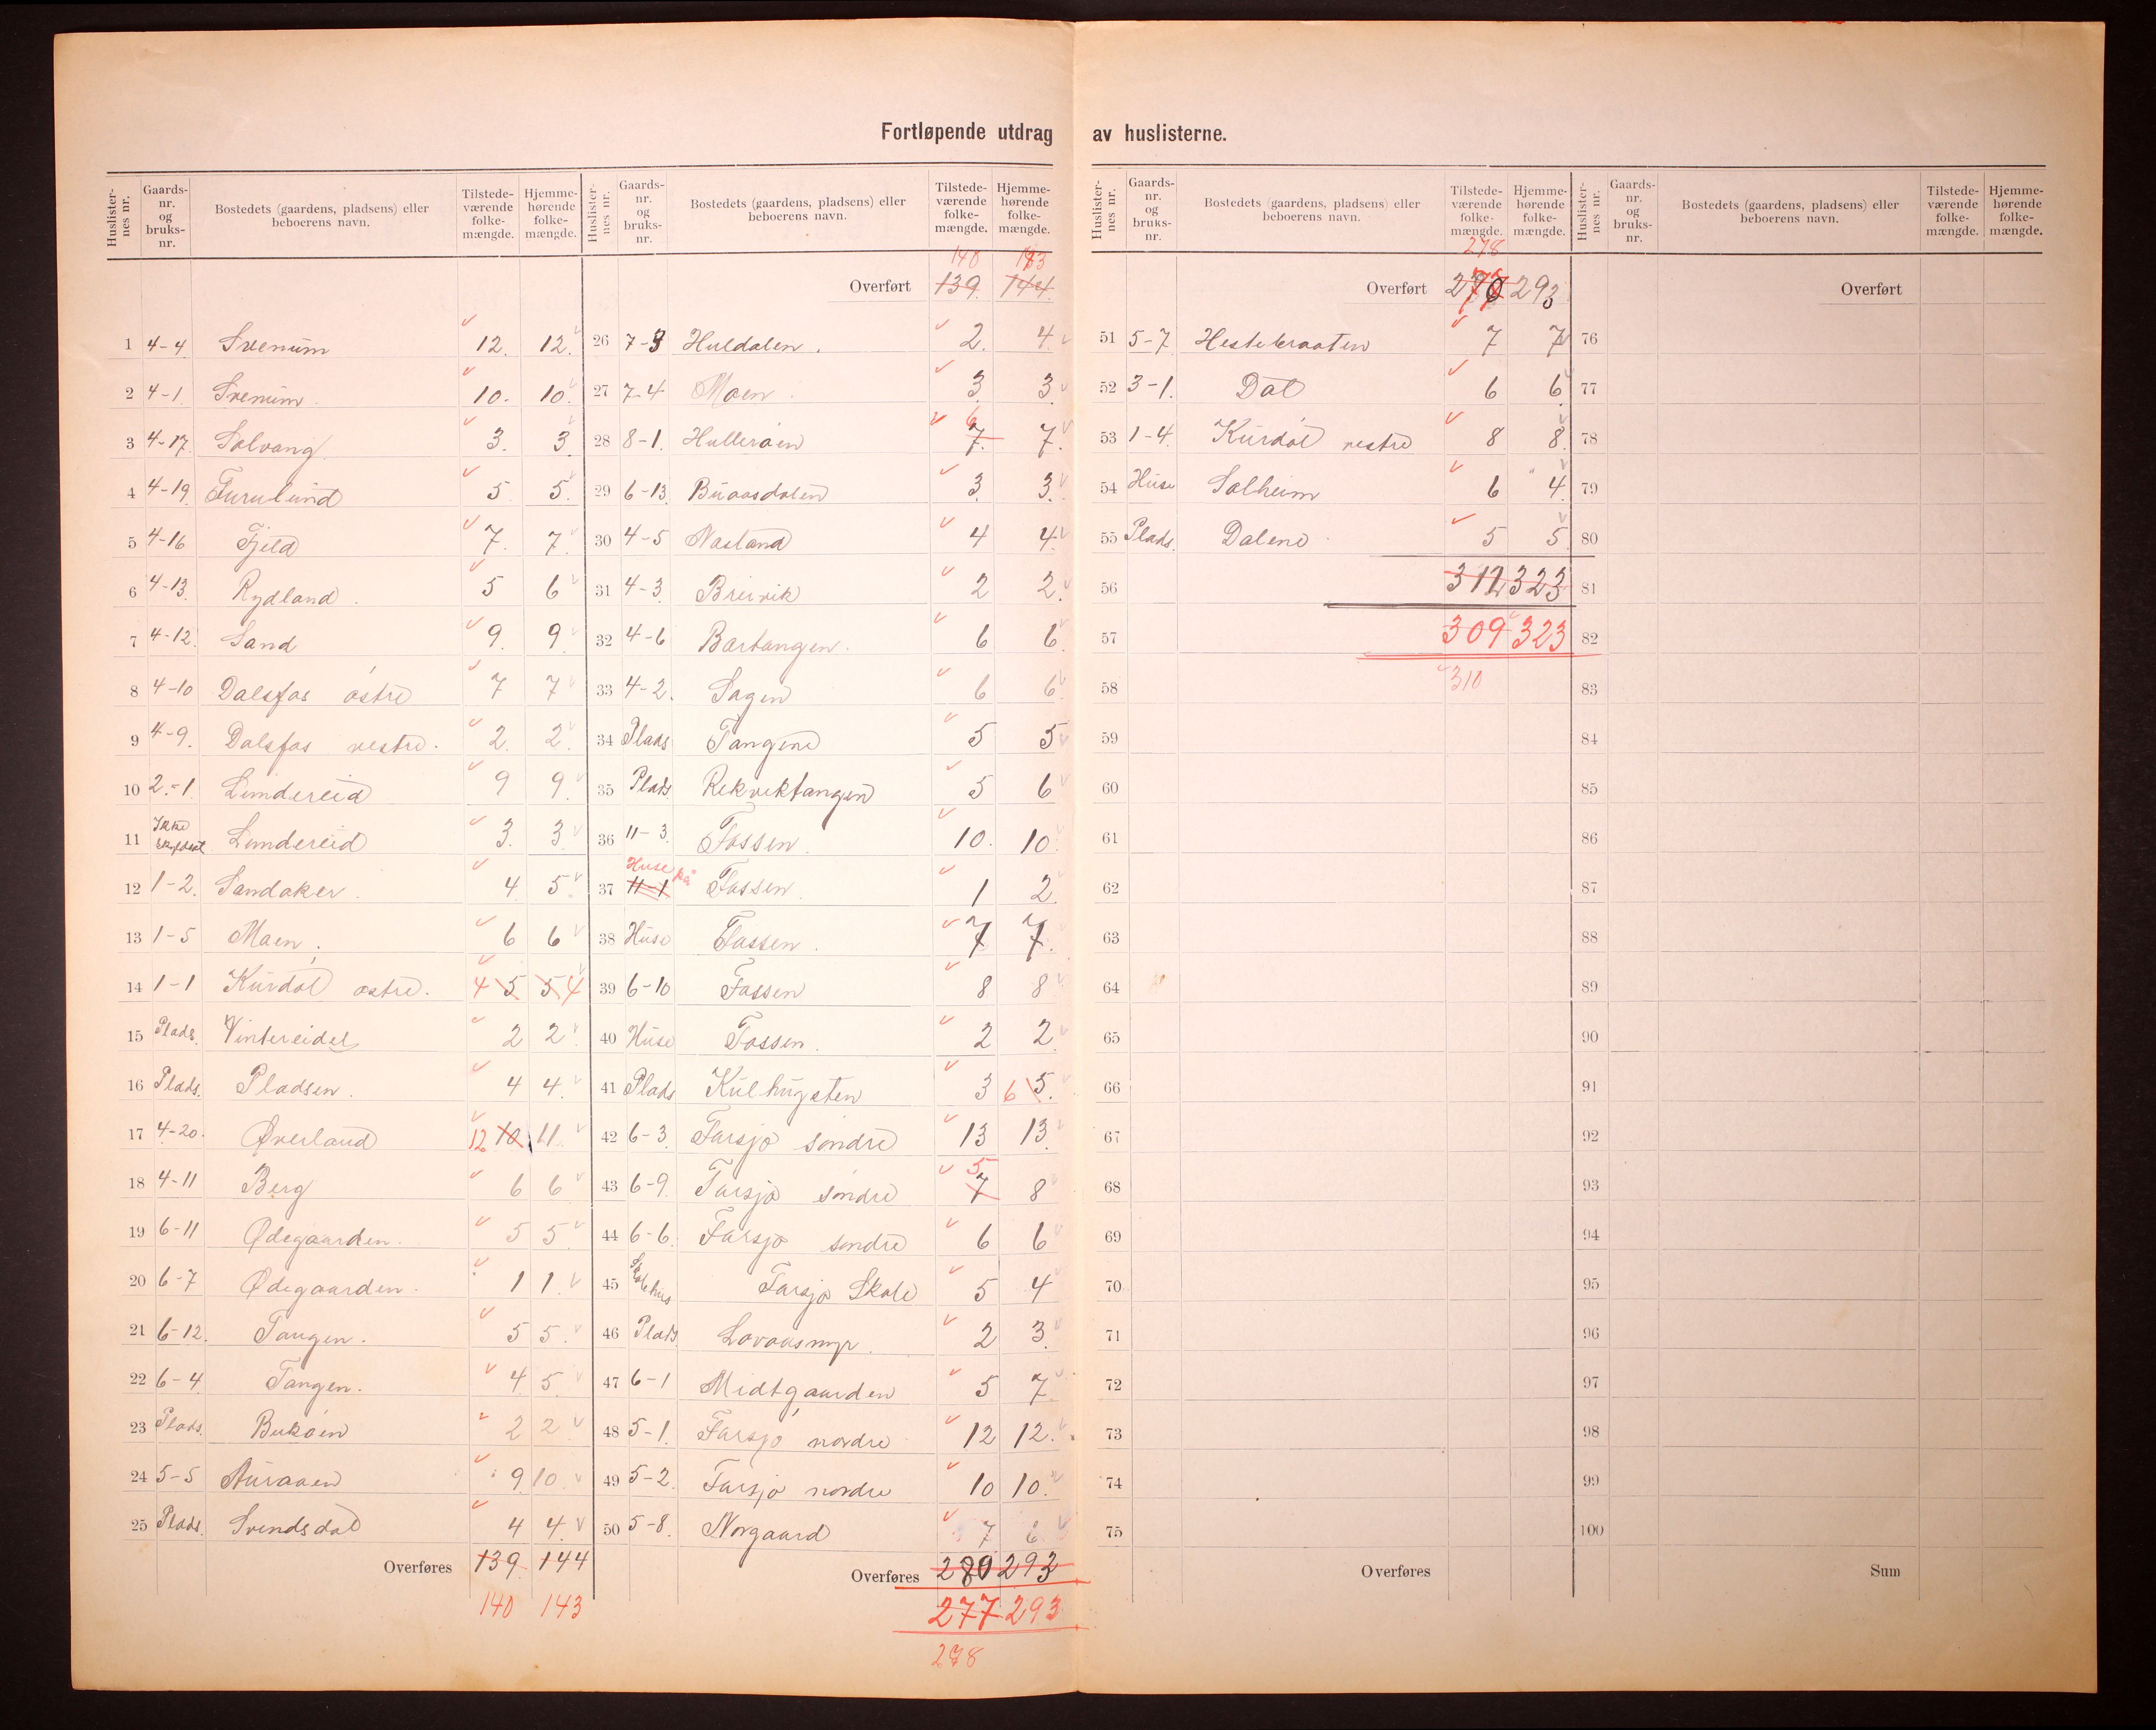 Fortløpende utdrag av huslisterne.
Huslister-nes nr. Gaards-nr. og bruks-nr. Bostedets (gaardens, pladsens) eller beboerens navn. Tilstede-værende folke-mængde. Hjemme-hørende folke-mængde.
1 4-4 Svenum 12. 12.
2 4-1. Svenum 10. 10.
3 4-17. Solvang 3. 3.
4 4-19. Furulund 5 5.
5 4-16 Fjeld 7. 7.
6 4-13. Rydland 5 6
7 4-12. Sand 9. 9.
8 4-10 Dalsfos østre 7 7
9 4-9. Dalsfos vestre. 2. 2.
10 2.-1. Lundereid 9 9.
11 Ikke skyldsat Lundereid 3. 3.
12 1-2. Sandaker 4 5
13 1-5 Moen. 6 6
14 1-1 Kurdøl østre. 4 5 5 4
15 Plads. Vintereidet 2 2.
16 Plads. Pladsen. 4 4.
17 4-20. Øverland 12 10 11
18 4-11 Berg 6 6
19 6-11 Ødegaarden. 5 5
20 6-7 Ødegaarden. 1 1.
21 6-12. Tangen. 5 5.
22 6-4 Tangen. 4 5
23 Plads. Bukøen 2 2.
24 5-5 Auraaen 9 10
25 Plads. Svendsdal 4 4.
Overføres 139. 144
140 143
Huslister-nes nr. Gaards-nr. og bruks-nr. Bostedets (gaardens, pladsens) eller beboerens navn. Tilstede-værende folke-mængde. Hjemme-hørende folke-mængde.
140 143
Overført 139. 144.
26 7-3 Huldalen. 2. 4.
27 7-4 Moen. 3. 3.
28 8-1. Hulleråen 6 7. 7.
29 6-13. Buaasdalen 3. 3.
30 4-5 Nasland 4 4.
31 4-3. Breivik 2 2.
32 4-6 Bartangen. 6 6.
33 4-2. Sagen 6 6.
34 Plads Tangene 5 5
35 Plads Rekviktangen 5 6
36 11-3. Fossen. 10. 10.
37 11-1 Huse på Fossen. 1 2.
38 Huse Fossen. 7 7.
39 6-10 Fossen 8 8
40 Huse Fossen. 2 2.
41 Plads Kulhugsten 3 6 5.
42 6-3. Farsjø søndre 13 13
43 6-9. Farsjø søndre 5 7 8
44 6-6. Farsjø søndre 6 6
45 Skolehus Farsjø Skole 5 4
46 Plads Lovaasmyr. 2 3.
47 6-1 Midtgaarden 5 7.
48 5-1. Farsjø nordre 12 12.
49 5-2. Farsjø nordre 10 10.
50 5-8. Norgaard 7 6
Overføres 280 293
277 293
278
Huslister-nes nr. Gaards-nr. og bruks-nr. Bostedets (gaardens, pladsens) eller beboerens navn. Tilstede-værende folke-mængde. Hjemme-hørende folke-mængde.
278
Overført 293
51 5-7 Hestebraaten 7 7
52 3-1. Dal 6 6.
53 1-4. Kurdøl vestre 8 8.
54 Huse Solheim 6 4.
55 Plads. Dalene 5 5.
56 312 323
57 309 323
58 310
59
60
61
62
63
64
65
66
67
68
69
70
71
72
73
74
75
Overføres
Huslister-nes nr. Gaards-nr. og bruks-nr. Bostedets (gaardens, pladsens) eller beboerens navn. Tilstede-værende folke-mængde. Hjemme-hørende folke-mængde.
Overført
76
77
78
79
80
81
82
83
84
85
86
87
88
89
90
91
92
93
94
95
96
97
98
99
100
Sum